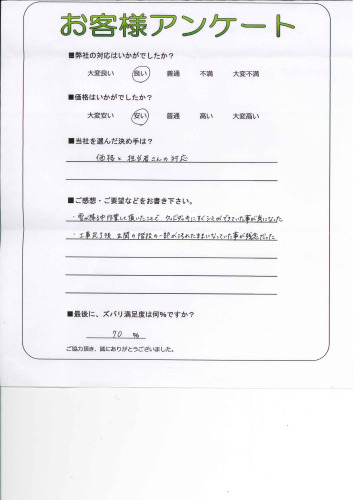 お客様アンケート
■弊社の対応はいかがでしたか?
大変良い 良い 普通 不満 大変不満
■価格はいかがでしたか?
大変安い 安い 普通 高い 大変高い
■当社を選んだ決め手は?
価格と担当者さんの対応
■ご感想・ご要望などをお書き下さい。
・雪が降る中作業して頂いたことで、ウッドデッキにすぐシミができていた事が気になった
・工事完了後、玄関の階段の一部が汚れたままになっていた事が残念だった
■最後に、ズバリ満足度は何%ですか?
70 %
ご協力頂き、誠にありがとうございました。